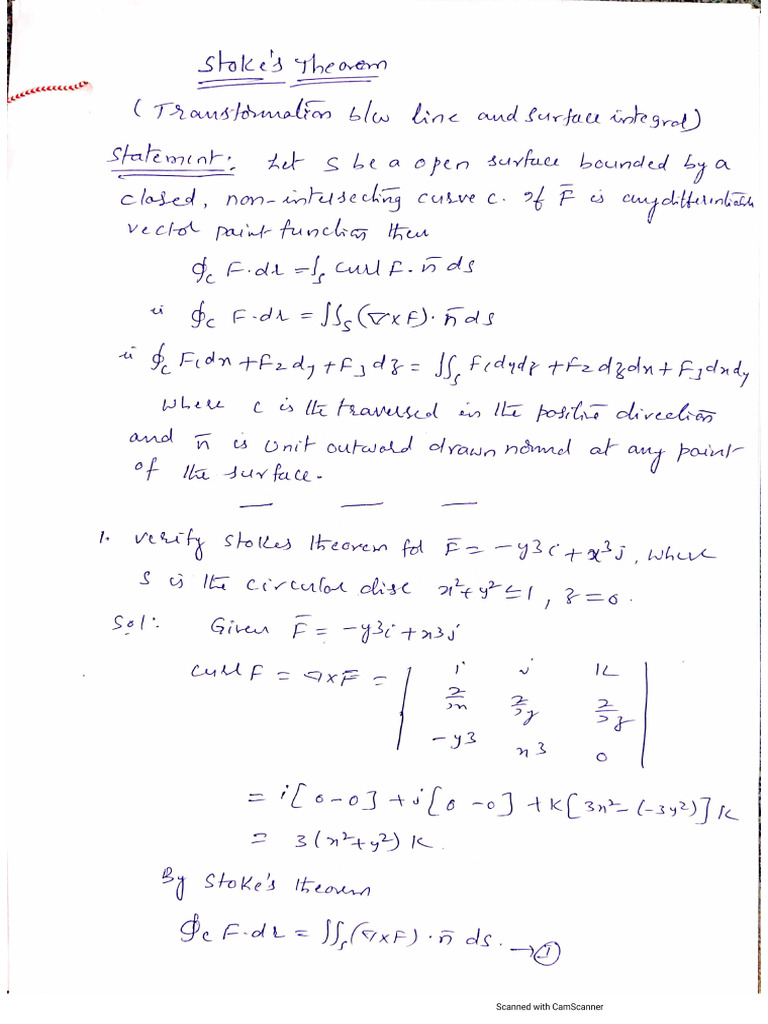 Stoke's Theorem
(Transformation b/w line and surface integral)
Statement: Let S be a open surface bounded by a
closed, non-intersecting curve c. If F̄ is any differentiable
vector point function then
∮c F·dr = ∫s curl F. n̄ ds
ii ∮c F·dr = ∫∫s (∇×F). n̄ ds
ii ∮c F1dx + F2dy + F3dz = ∫∫s F1dydz + F2dzdx + F3dxdy
where c is the traversed in the positive direction
and n̄ is unit outward drawn normal at any point
of the surface.
— — —
1. Verify Stokes theorem for F̄ = -y3i + x³j, where
S is the circular disc x²+y² ≤ 1, z = 0.
Sol: Given F̄ = -y3i + x3j
curl F = ∇×F̄ = | i j k
∂/∂x ∂/∂y ∂/∂z
-y3 x3 0 |
= i[0-0] + j[0-0] + k[3x²-(-3y²)] k
= 3(x²+y²) k.
By Stoke's theorem
∮c F·dr = ∫∫s (∇×F)· n̄ ds. → ①
Scanned with CamScanner